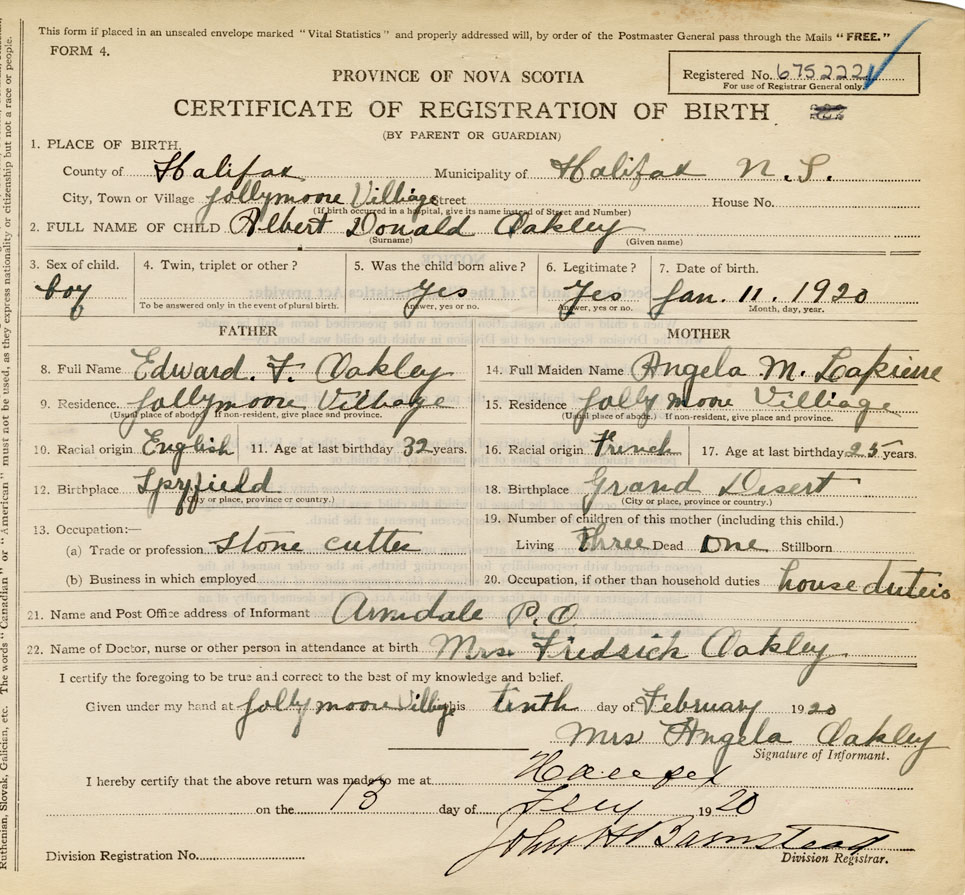 This form if placed in an unsealed envelope marked "Vital Statistics" and properly addressed will, by order of the Postmaster General pass through the Mails "FREE."
FORM 4.
Registered No. 675222
For use of Registrar General only.
PROVINCE OF NOVA SCOTIA
CERTIFICATE OF REGISTRATION OF BIRTH
(BY PARENT OR GUARDIAN)
1. PLACE OF BIRTH.
County of Halifax Municipality of Halifax N. S.
City, Town or Village Jollymoore Villiage Street House No.
(If birth occurred in a hospital, give its name instead of Street and Number)
2. FULL NAME OF CHILD Albert Donald Oakley
(Surname) (Given name)
3. Sex of child. 4. Twin, triplet or other? 5. Was the child born alive? 6. Legitimate? 7. Date of birth.
boy Yes Yes Jan. 11. 1920
To be answered only in the event of plural birth. Answer, yes or no. Answer, yes or no. Month, day, year.
FATHER MOTHER
8. Full Name Edward. F. Oakley 14. Full Maiden Name Angela M. Lapierre
9. Residence Jollymoore Villiage 15. Residence Jollymoore Villiage
(Usual place of abode.) If non-resident, give place and province. (Usual place of abode.) If non-resident, give place and province.
10. Racial origin English 11. Age at last birthday 32 years. 16. Racial origin French 17. Age at last birthday 25 years.
12. Birthplace Spryfield 18. Birthplace Grand Desert
(City or place, province or country.) (City or place, province or country.)
13. Occupation:— 19. Number of children of this mother (including this child.)
(a) Trade or profession stone cutter Living Three Dead One Stillborn
(b) Business in which employed 20. Occupation, if other than household duties house duteis
21. Name and Post Office address of Informant Armdale P.O.
22. Name of Doctor, nurse or other person in attendance at birth Mrs. Fredrick Oakley
I certify the foregoing to be true and correct to the best of my knowledge and belief.
Given under my hand at Jollymoore Villiage this tenth day of February 1920
Mrs Angela Oakley
Signature of Informant.
I hereby certify that the above return was made to me at
on the 13 day of 1920
John H Brunstead
Division Registrar.
Division Registration No.
Ruthenian, Slovak, Galician, etc. The words "Canadian" or "American" must not be used, as they express nationality or citizenship but not a race or people.